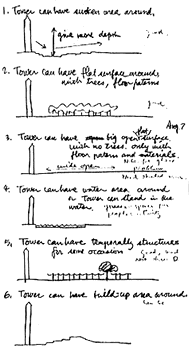 1. Tower can have sunken area around.
give more depth
good
2. Tower can have flat surface around
with trees, floor paterns
Aug 7
3. Tower can have open big open surface
with no trees. only with
floor patern and materials.
wide open
problem
4. Tower can have water area around
or Tower can stand in the
water.
5. Tower can have temporally structures
for some occasion
Good, and
6. Tower can have build-up area around